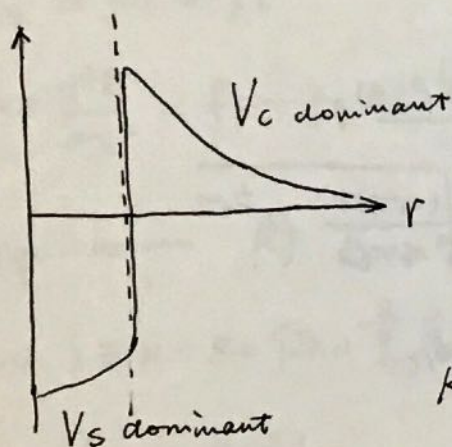 Vc dominant
r
Vs dominant